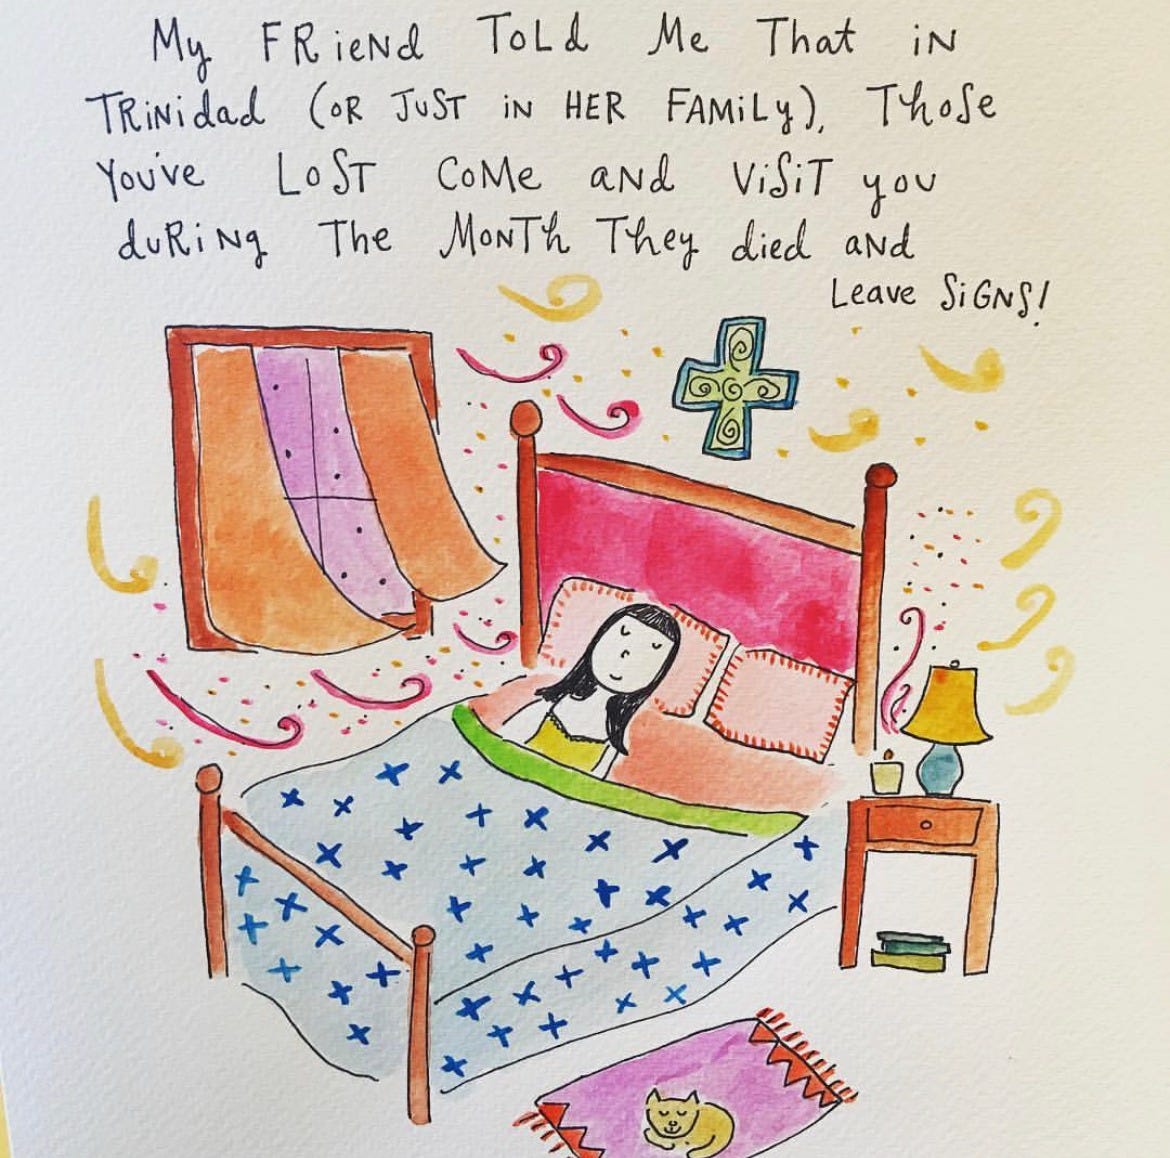 My FRieNd ToLd Me That iN
TRiNidad (OR JUST iN HER FAMiLy), Those
You've LoST CoMe aNd ViSiT you
duRiNg The MoNTh They died aNd
Leave SiGNS!